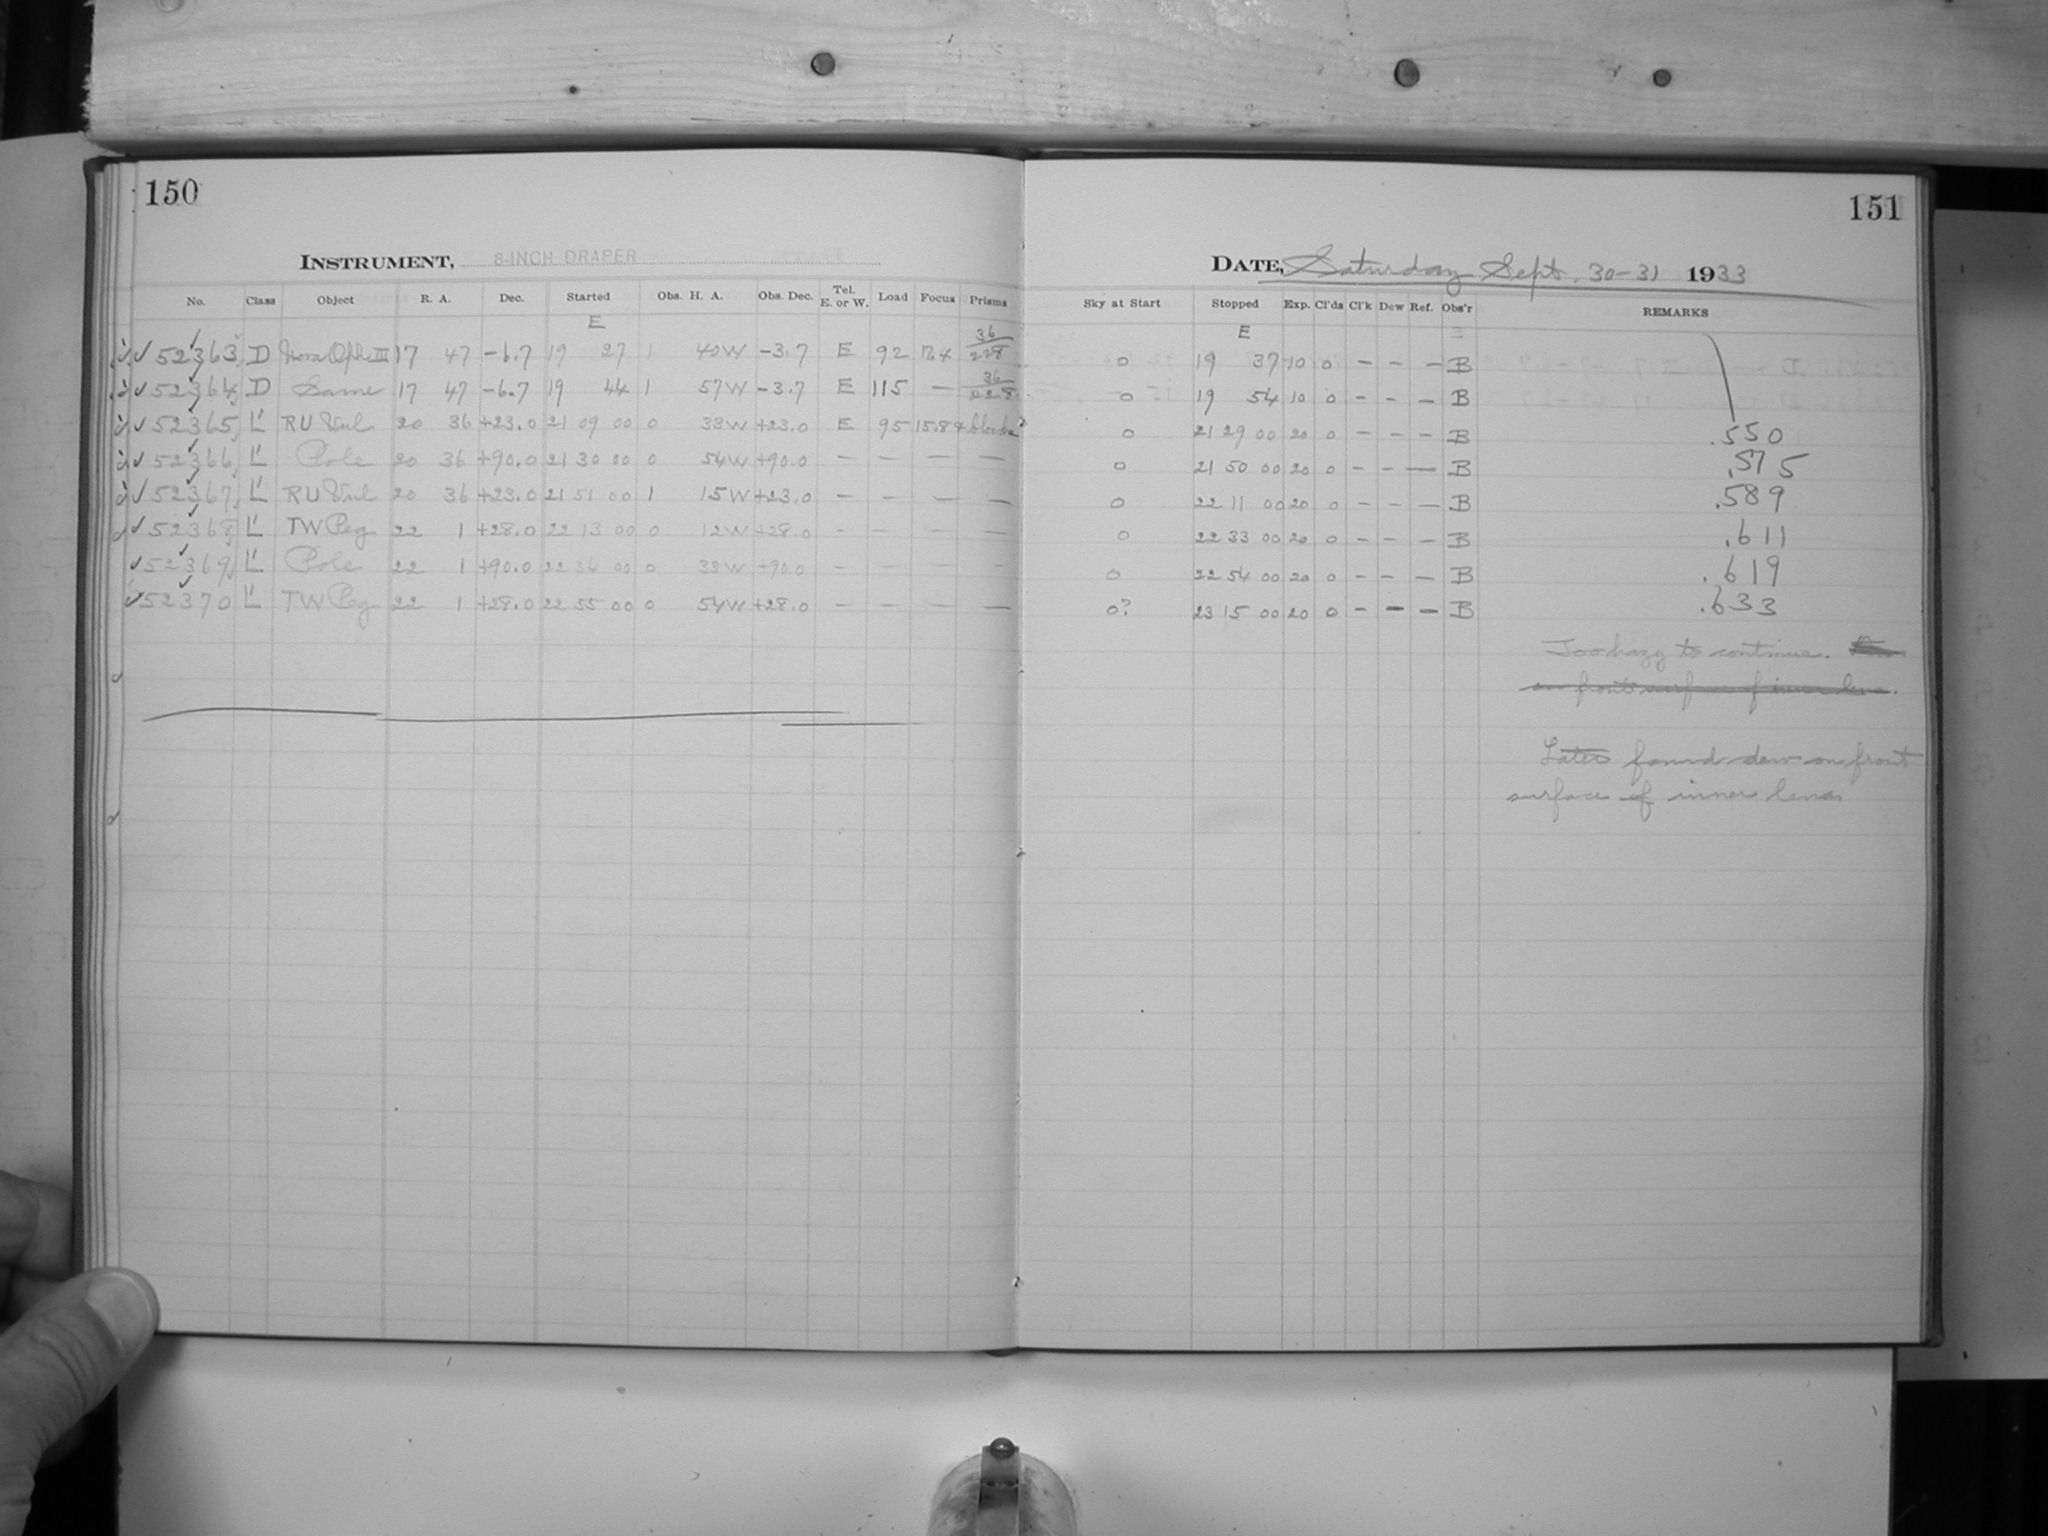 150
INSTRUMENT, 8-INCH DRAPER
No. Class Object R. A. Dec. Started Obs. H. A. Obs. Dec. Tel. E. or W. Load Focus Prisms
E
✓ 52363 D Nova Oph III 17 47 -6.7 19 27 1 40W -3.7 E 92 17.4 36/228
✓ 52364 D Same 17 47 -6.7 19 44 1 57W -3.7 E 115 — 36/228
✓ 52365 L' RU Vul 20 36 +23.0 21 09 00 0 33W +23.0 E 95 15.8
✓ 52366 L' Pole 20 36 +90.0 21 30 00 0 54W +90.0 — — — —
✓ 52367 L' RU Vul 20 36 +23.0 21 51 00 1 15W +23.0 — — — —
✓ 52368 L' TW Peg 22 1 +28.0 22 13 00 0 12W +28.0 — — — —
✓ 52369 L' Pole 22 1 +90.0 22 34 00 0 33W +90.0 — — — —
✓ 52370 L' TW Peg 22 1 +28.0 22 55 00 0 54W +28.0 — — — —
151
DATE, Saturday Sept. 30-31 1933
Sky at Start Stopped Exp. Cl'ds Cl'k Dew Ref. Obs'r REMARKS
E
0 19 37 10 0 — — — B
0 19 54 10 0 — — — B
0 21 29 00 20 0 — — — B .550
0 21 50 00 20 0 — — — B .575
0 22 11 00 20 0 — — — B .589
0 22 33 00 20 0 — — — B .611
0 22 54 00 20 0 — — — B .619
0? 23 15 00 20 0 — — — B .633
Too hazy to continue.
on front surface of inner lens.
Later found dew on front
surface of inner lens